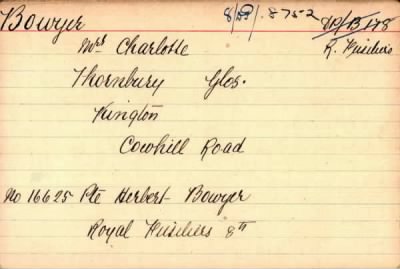 Bowyer
8/10/.8752
R. Fusiliers
Mrs Charlotte
Thornbury Glos.
Kington
Cowhill Road
No 16625 Pte Herbert Bowyer
Royal Fusiliers 8th